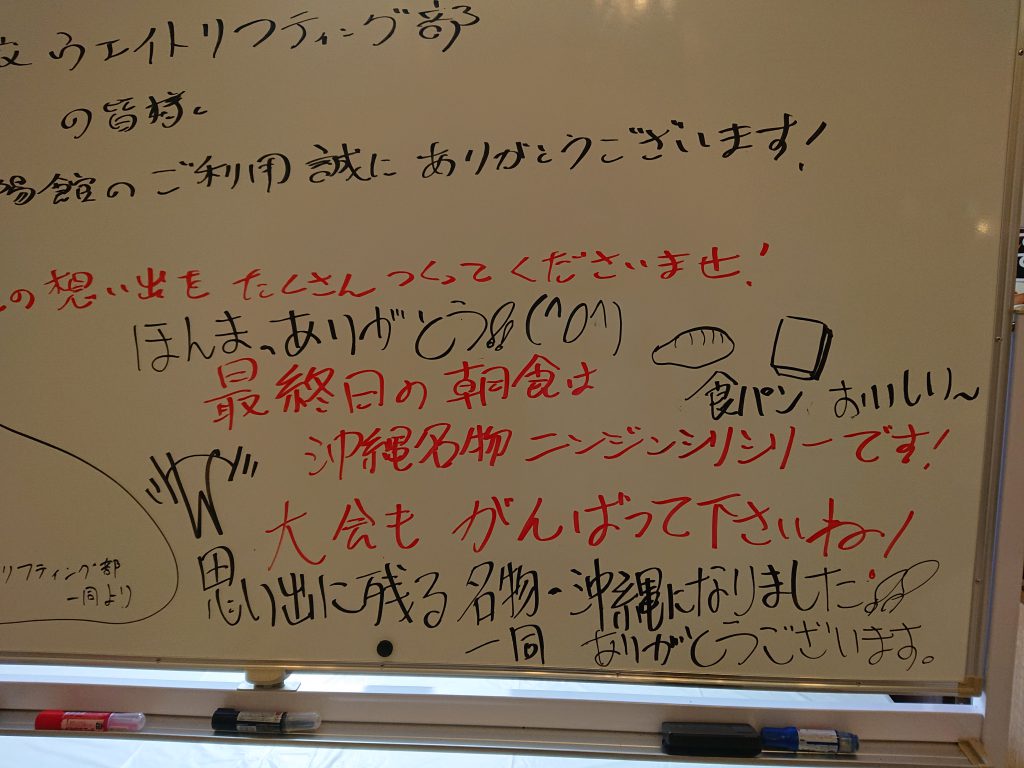 校ウエイトリフティング部
の皆様。
陽館のご利用誠にありがとうございます!
の想い出をたくさんつくってくださいませ!
ほんまっありがとう!!(^0^)
最終日の朝食は
食パン おいしい〜
沖縄名物ニンジンシリシリーです!
大会もがんばって下さいね!
リフティング部
一同より
思い出に残る名物・沖縄になりました!!
一同 ありがとうございます。